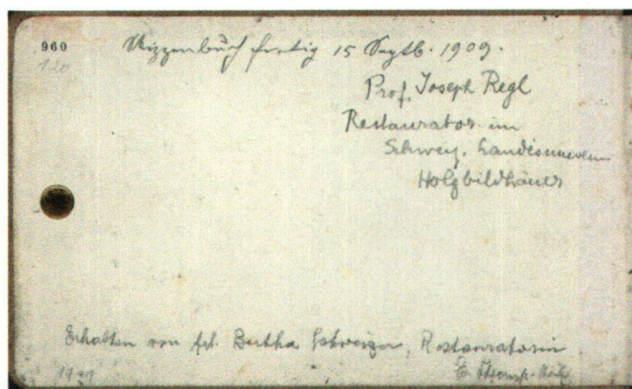 960
120
Skizzenbuch fertig 15 Septb. 1909.
Prof. Joseph Regl
Restaurator im
Schweiz. Landesmuseum
Holzbildhauer
Erhalten von Frl. Bertha Schweizer, Restauratorin
E.